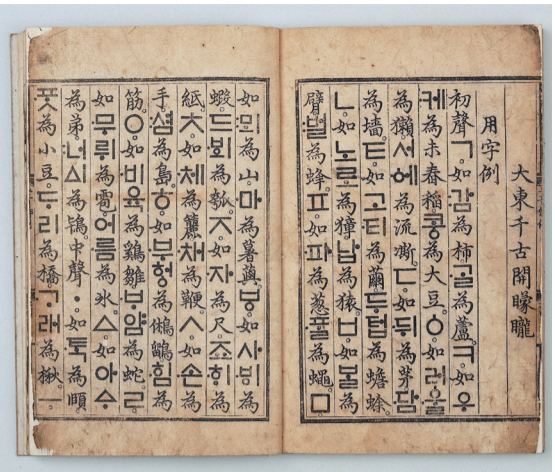 大東千古開矇矓
用字例
初聲ㄱ。如감為柿。ᄀᆞᆯ為蘆。ㅋ。如우
케為未舂稻。콩為大豆。ㆁ。如러울
為獺。서에為流凘。ㄷ。如뒤為茅。담
為墻。ㅌ。如고티為繭。두텁為蟾蜍。
ㄴ。如노로為獐。납為猿。ㅂ。如ᄇᆞᆯ為
臂。벌為蜂。ㅍ。如파為葱。ᄑᆞᆯ為蠅。ㅁ。
如뫼為山。마為薯藇。ㅸ。如사ᄫᅵ為
蝦。드ᄫᅴ為瓠。ㅈ。如자為尺。죠ᄒᆡ為
紙。ㅊ。如체為籭。채為鞭。ㅅ。如손為
手。셤為島。ㅎ。如부헝為鵂鶹。힘為
筋。ㅇ。如비육為鷄雛。ᄇᆞ얌為蛇。ㄹ。
如무뤼為雹。어름為氷。ㅿ。如아ᅀᆞ
為弟。너ᅀᅵ為鴇。中聲ㆍ。如ᄐᆞᆨ為頤。
ᄑᆞᆺ為小豆。ᄃᆞ리為橋。ᄀᆞ래為楸。ㅡ。